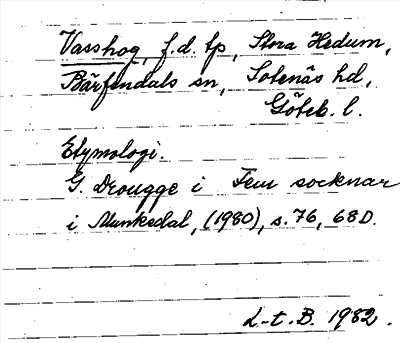 Vasshog, f.d. tp, Stora Hedum,
Bärfendals sn, Sotenäs hd,
Göteb. l.
Etymologi.
G. Drougge i Fem socknar
i Munkedal, (1980), s. 76, 68D.
L-t. B. 1982.